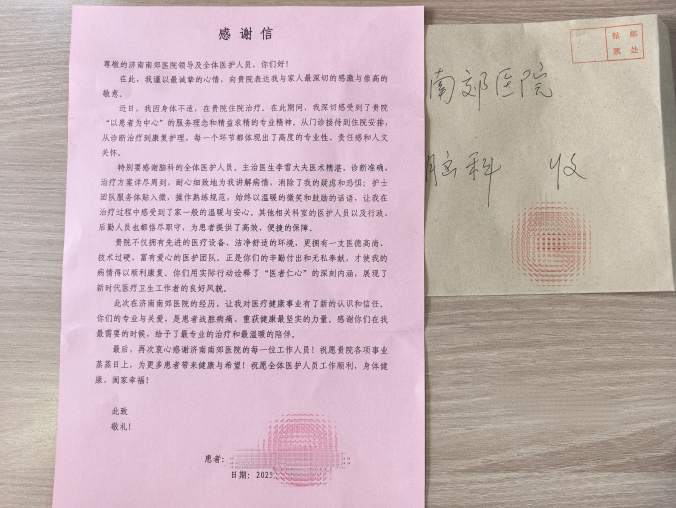 感谢信
尊敬的济南南郊医院领导及全体医护人员，你们好！
在此，我谨以最诚挚的心情，向贵院表达我与家人最深切的感激与崇高的
敬意。
近日，我因身体不适，在贵院住院治疗。在此期间，我深切感受到了贵院
“以患者为中心”的服务理念和精益求精的专业精神。从门诊接待到住院安排，
从诊断治疗到康复护理，每一个环节都体现出了高度的专业性、责任感和人文
关怀。
特别要感谢脑科的全体医护人员。主治医生李雷大夫医术精湛，诊断准确，
治疗方案详尽周到，耐心细致地为我讲解病情，消除了我的疑虑和恐惧；护士
团队服务体贴入微，操作熟练规范，始终以温暖的微笑和鼓励的话语，让我在
治疗过程中感受到了家一般的温暖与安心。其他相关科室的医护人员以及行政、
后勤人员也都恪尽职守，为患者提供了高效、便捷的保障。
贵院不仅拥有先进的医疗设备、洁净舒适的环境，更拥有一支医德高尚、
技术过硬、富有爱心的医护团队。正是你们的辛勤付出和无私奉献，才使我的
病情得以顺利康复。你们用实际行动诠释了“医者仁心”的深刻内涵，展现了
新时代医疗卫生工作者的良好风貌。
此次在济南南郊医院的经历，让我对医疗健康事业有了新的认识和信任。
你们的专业与关爱，是患者战胜病痛、重获健康最坚实的力量。感谢你们在我
最需要的时候，给予了最专业的治疗和最温暖的陪伴。
最后，再次衷心感谢济南南郊医院的每一位工作人员！祝愿贵院各项事业
蒸蒸日上，为更多患者带来健康与希望！祝愿全体医护人员工作顺利，身体健
康，阖家幸福！
此致
敬礼！
患者：
日期：2025
贴 邮
票 处
南郊医院
脑科 收